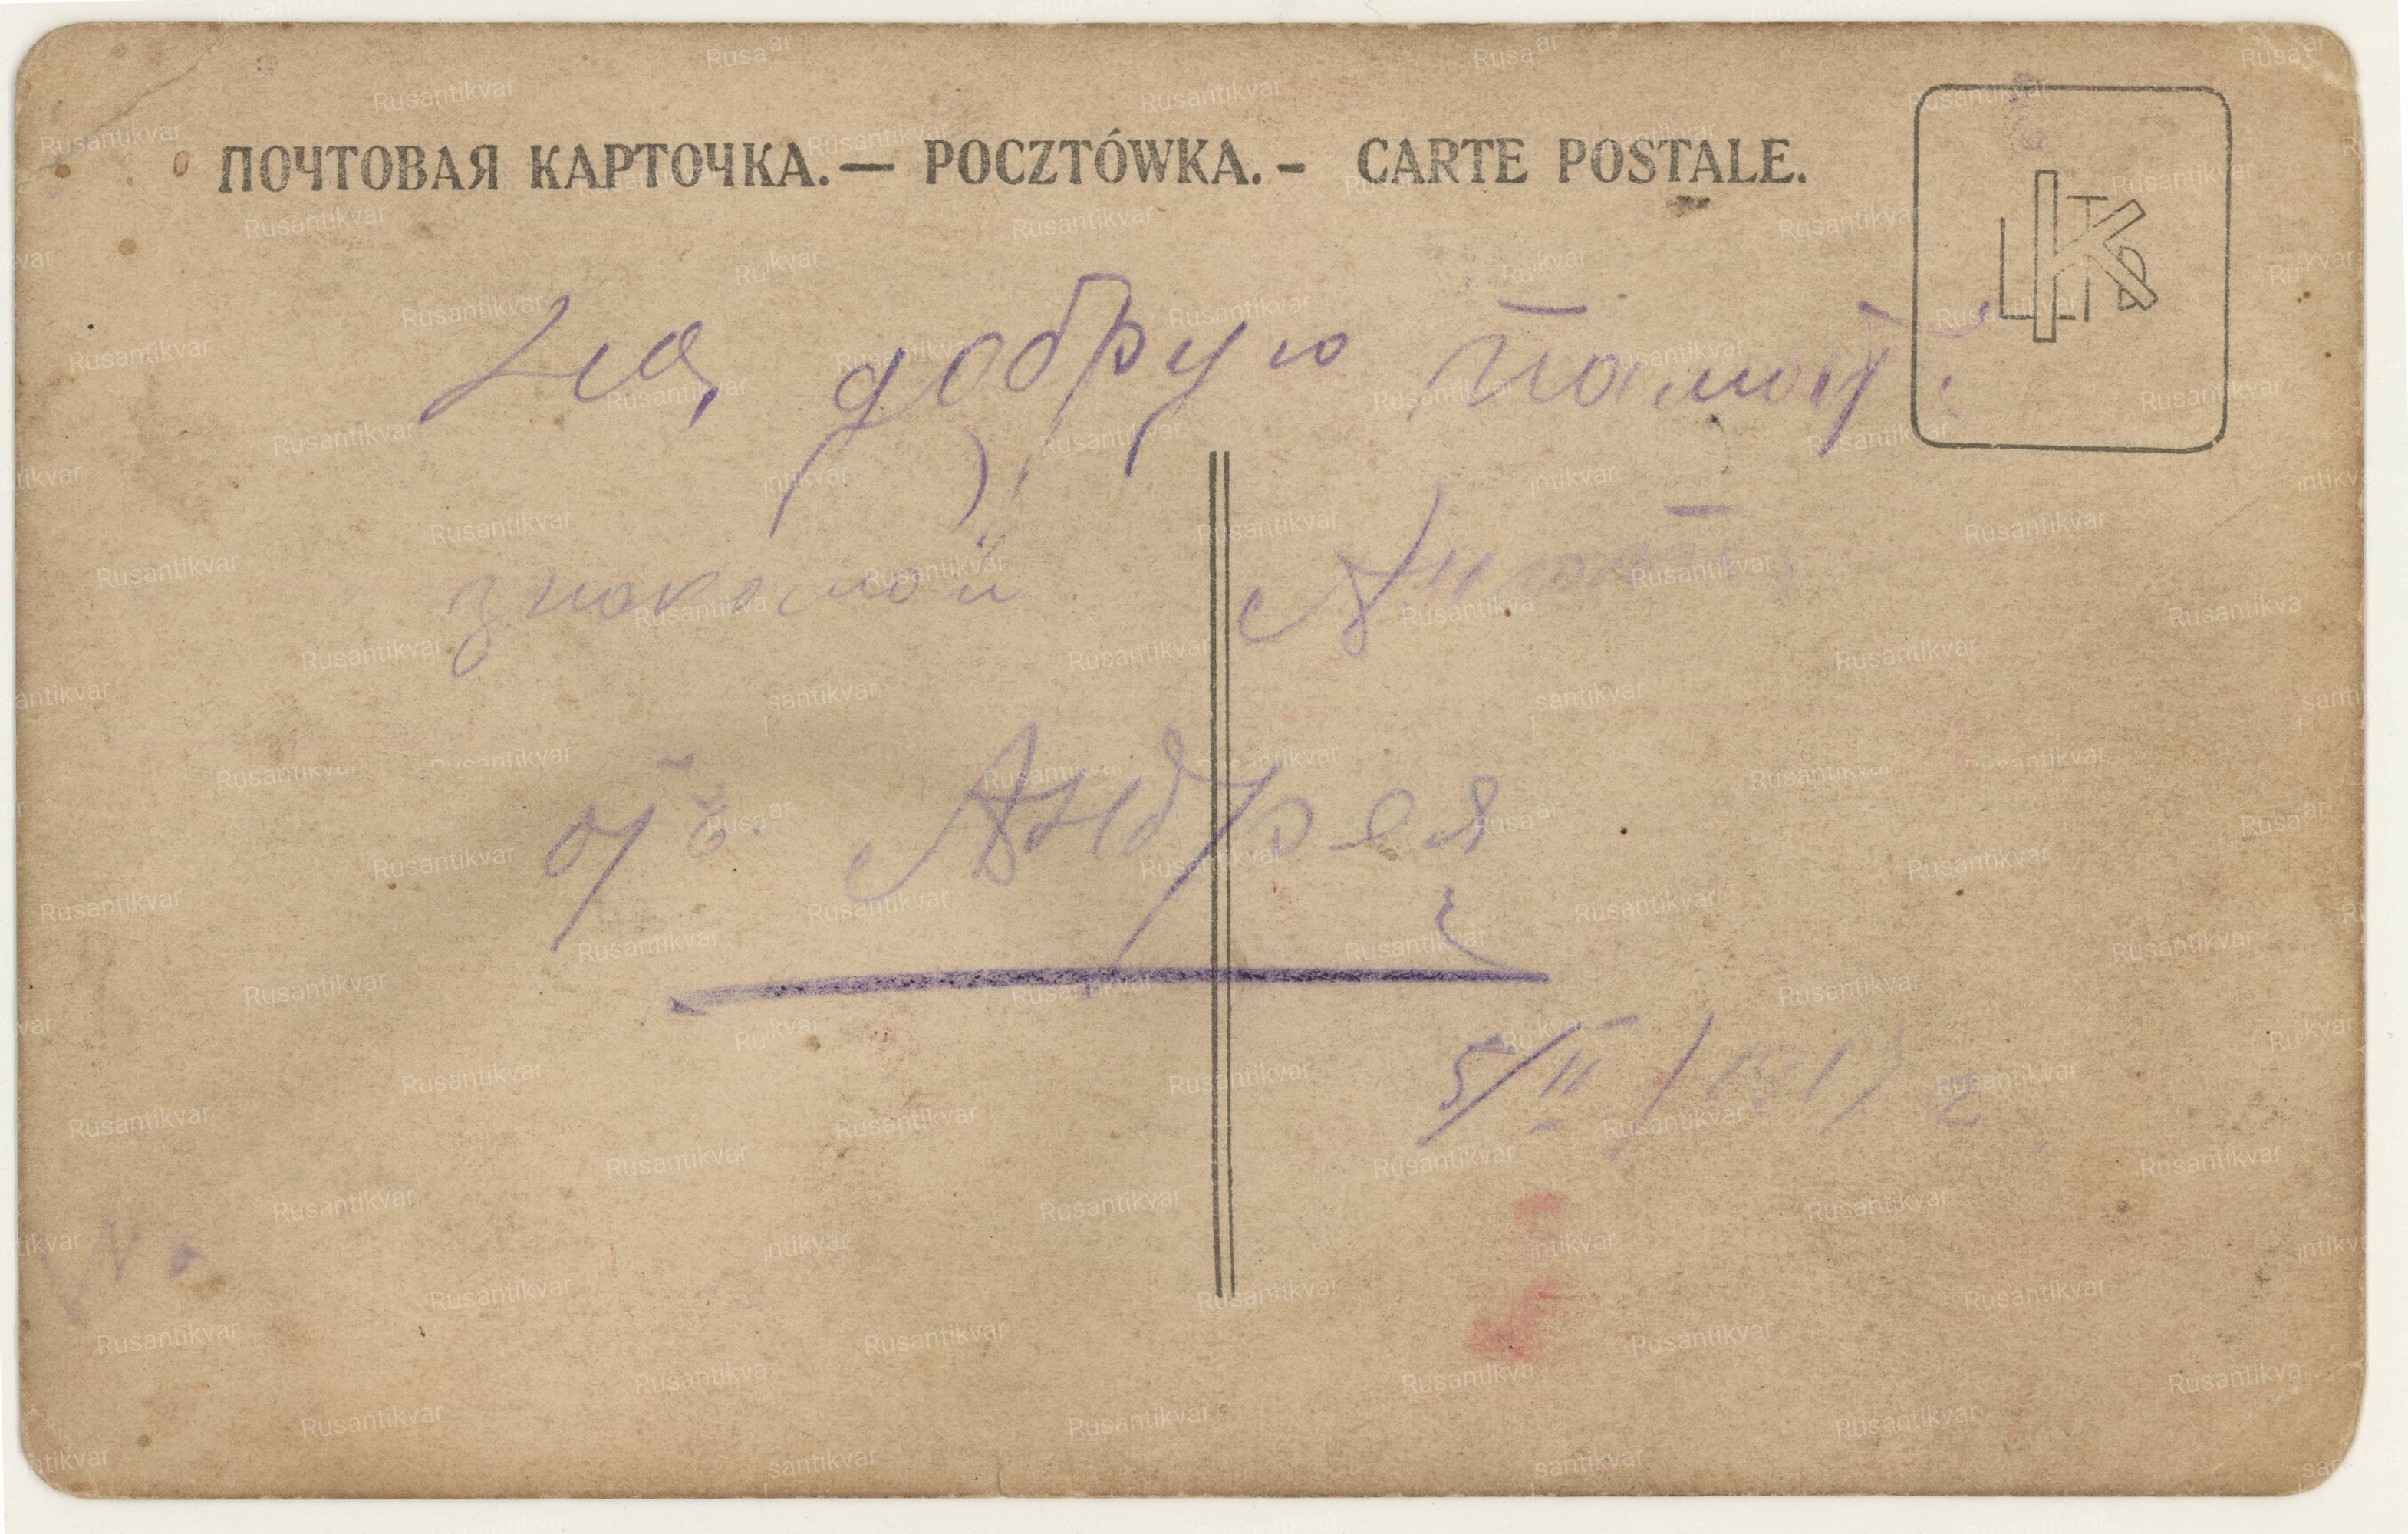 ПОЧТОВАЯ КАРТОЧКА.— POCZTÓWKA.- CARTE POSTALE.
На добрую память
знакомой
отъ Андрея
5/II 1917 г.